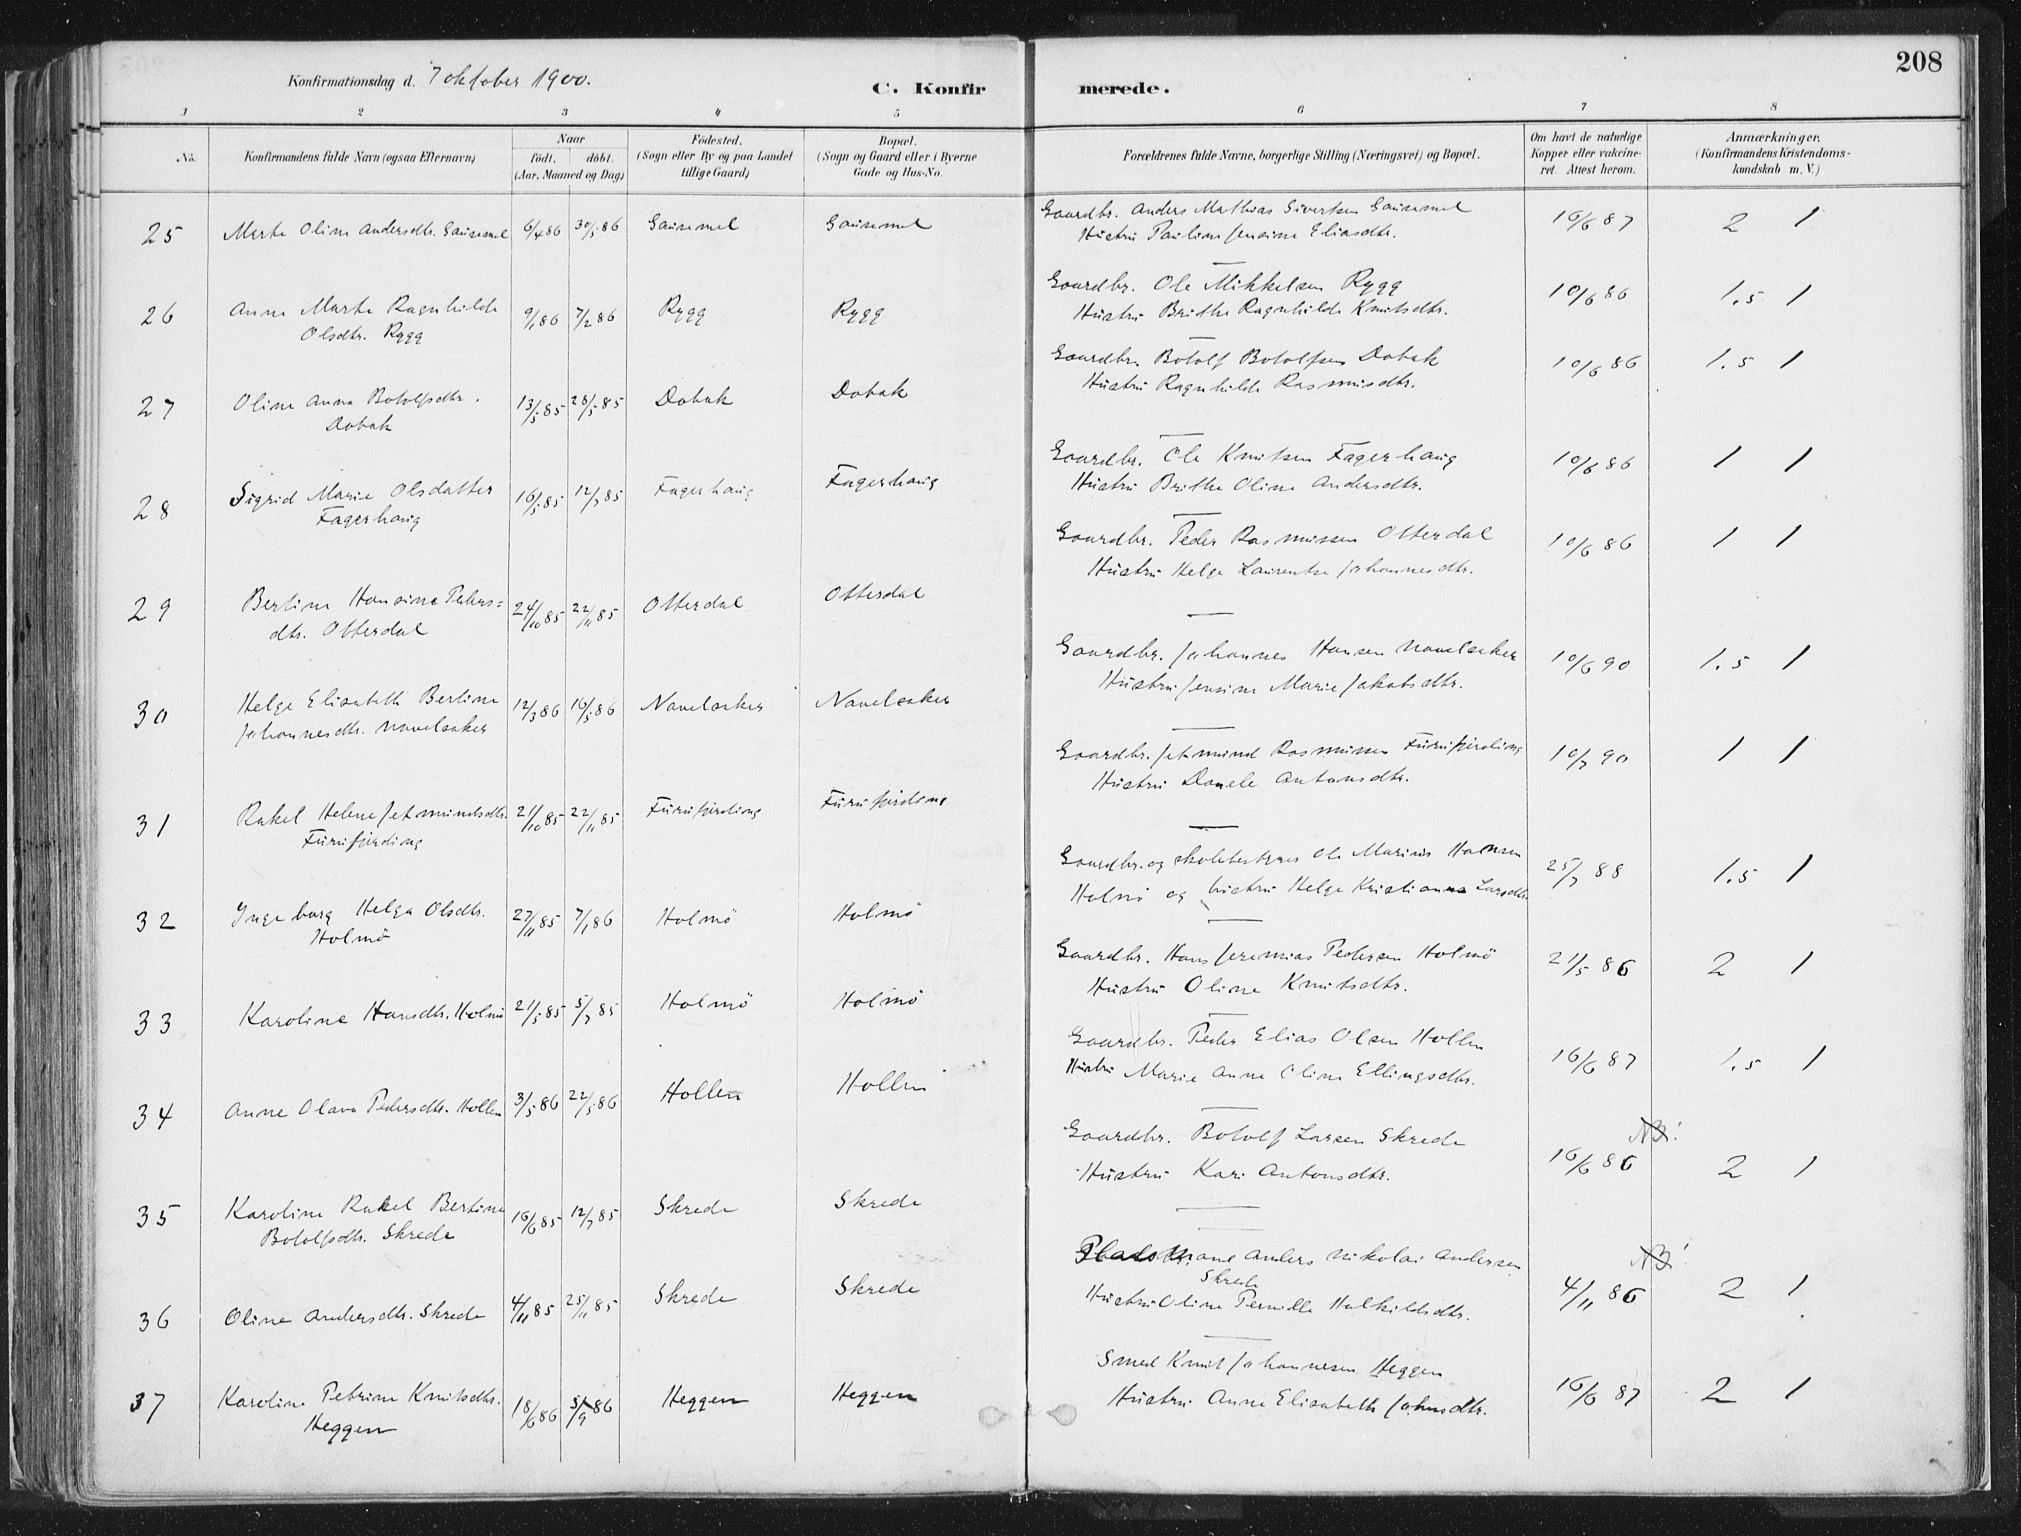 208
Konfirmationsdag d. 7 oktober 1900.
C. Konfir merede.
1 2 3 4 5 6 7 8
No.
Konfirmandens fulde Navn (ogsaa Efternavn)
Naar
födt. döbt.
(Aar, Maaned og Dag)
Födested.
(Sogn eller By og paa Landet
tillige Gaard)
Bopæl.
(Sogn og Gaard eller i Byerne
Gade og Hus-No.
Forældrenes fulde Navne, borgerlige Stilling (Næringsvei) og Bopæl.
Om havt de naturlige
Kopper eller vakcine-
ret. Attest herom.
Anmærkninger.
(Konfirmandens Kristendoms-
kundskab m. V.)
25 Marte Oline Andersdtr. Gausemel 6/4 86 30/5 86 Gausemel Gausemel
Gaardbr. Anders Mathias Sivertsen Gausemel
Hustru Pauline Jensine Eliasdtr.
16/6 87 2 1
26 Anne Marte Ragnhilde
Olsdtr. Rygg
9/1 86 7/2 86 Rygg Rygg
Gaardbr. Ole Mikkelsen Rygg
Hustru Brithe Ragnhilde Knutsdtr.
10/6 86 1.5 1
27 Oline Anna Botolfsdtr.
Dobak
13/5 85 28/5 85 Dobak Dobak
Gaardbr. Botolf Botolfsen Dobak
Hustru Ragnhilde Rasmusdtr.
10/6 86 1.5 1
28 Sigrid Marie Olsdatter
Fagerhaug
16/5 85 12/7 85 Fagerhaug Fagerhaug
Gaardbr. Ole Knutsen Fagerhaug
Hustru Brithe Oline Andersdtr.
10/6 86 1 1
29 Bertine Hansine Peders=
dtr. Otterdal
24/10 85 22/11 85 Otterdal Otterdal
Gaardbr. Peder Rasmussen Otterdal
Hustru Helge Laurentse Johannesdtr.
10/6 86 1 1
30 Helge Elisabeth Bertine
Johannesdtr. Navelsaker
12/3 86 16/5 86 Navelsaker Navelsaker
Gaardbr. Johannes Hansen Navelsaker
Hustru Jensine Marie Jakobsdtr.
10/6 90 1.5 1
31 Rakel Helene Jetmundsdtr.
Furufjerding
21/10 85 22/11 85 Furufjerding Furufjerding
Gaardbr. Jetmund Rasmussen Furufjerding
Hustru Danele Antonsdtr.
10/7 90 1 1
32 Ingeborg Helga Olsdtr.
Holmö
27/11 85 7/1 86 Holmö Holmö
Gaardbr. og skolebestyrer Ole Marius Hansen
Holmö og hustru Helge Kristianna Larsdtr.
25/7 88 1.5 1
33 Karoline Hansdtr. Holmö 21/5 85 5/7 85 Holmö Holmö
Gaardbr. Hans Jeremias Pedersen Holmö
Hustru Oline Knutsdtr.
21/5 86 2 1
34 Anne Olava Pedersdtr. Hollen 3/5 86 22/5 86 Hollen Hollen
Gaardbr. Peder Elias Olsen Hollen
Hustru Marie Anne Oline Ellingsdtr.
16/6 87 1.5 1
35 Karoline Rakel Bertine
Botolfsdtr. Skrede
16/6 85 12/7 85 Skrede Skrede
Gaardbr. Botolf Larsen Skrede
Hustru Kari Antonsdtr.
NB!
16/6 86 2 1
36 Oline Andersdtr. Skrede 4/11 85 25/11 85 Skrede Skrede
Pladsmand Anders Nikolai Andersen
Skrede
Hustru Oline Pernille Halkildsdtr.
NB!
4/11 86 2 1
37 Karoline Petrine Knutsdtr.
Heggen
18/6 86 5/9 86 Heggen Heggen
Smed Knut Johannesen Heggen
Hustru Anne Elisabeth Johnsdtr.
16/6 87 2 1